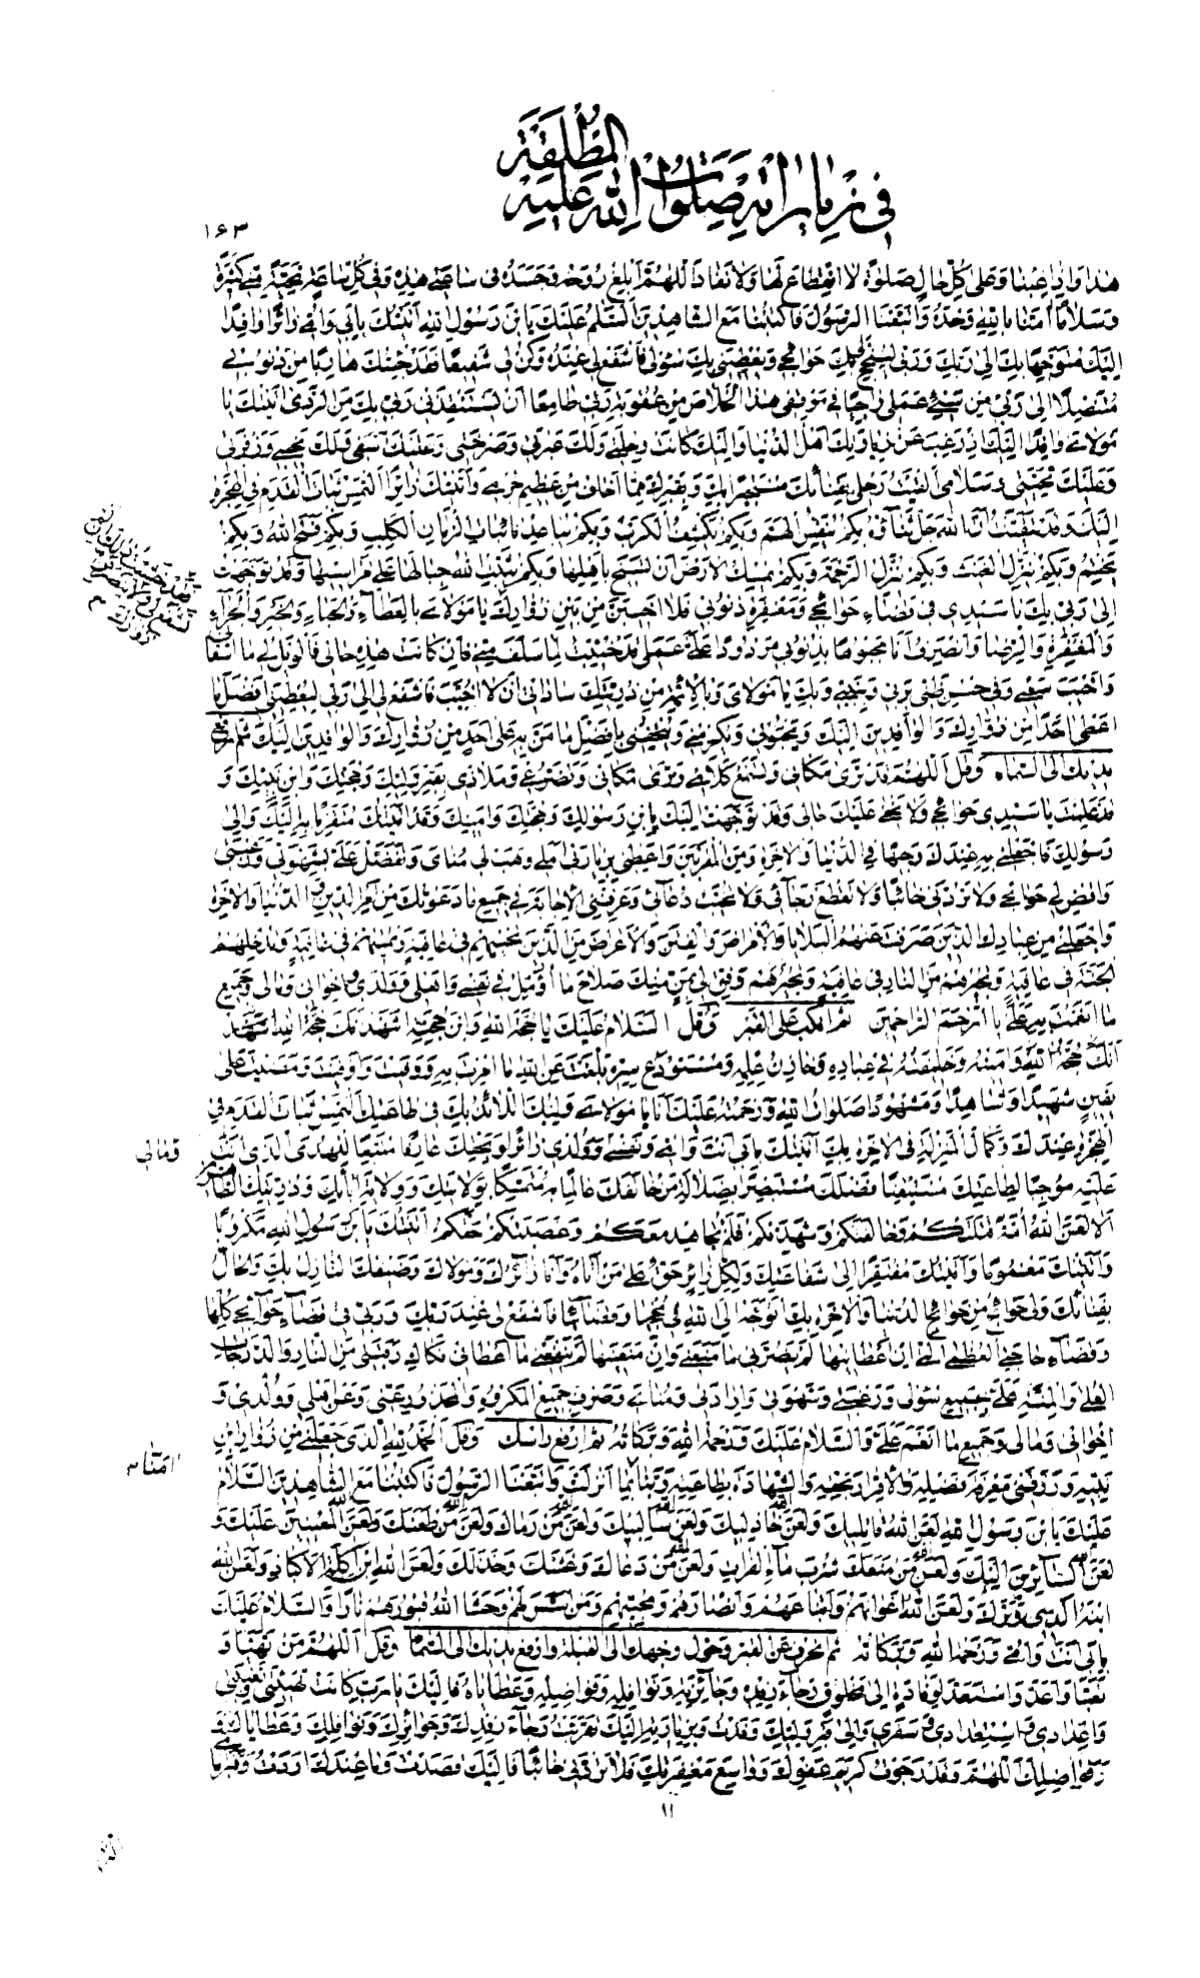 المطلقة
في زياراته صلوات الله عليه
١٦٣
هذا وإذا غبنا وعلى كل حال صلوة لا انقطاع لها ولا نفاد اللهم أبلغ روحه وجسده في ساعتي هذه وفي كل ساعة تحية مني كثيرة
وسلاما آمنا بالله وحده واتبعنا الرسول فاكتبنا مع الشاهدين السلام عليك يا بن رسول الله أتيتك بأبي وأمي زائرا وافدا
إليك متوجها بك إلى ربك وربي لينجح بك حوائجي ويعطيني بك سؤلي فاشفع لي عنده وكن لي شفيعا فقد جئتك هاربا من ذنوبي
متنصلا إلى ربي من سيئ عملي راجيا في موقفي هذا الخلاص من عقوبة ربي طامعا أن يستنقذني ربي بك من الردى أتيتك يا
مولاي وافدا إليك إذ رغب عن زيارتك أهل الدنيا وإليك كانت رحلتي ولك عبرتي وصرختي وعليك أسفي ولك نحيبي وزفرتي
وعليك تحيتي وسلامي ألقيت رحلي بفنائك مستجيرا بك وبقبرك مما أخاف من عظيم جرمي وأتيتك زائرا ألتمس ثبات القدم في الهجرة
إليك وقد تيقنت أن الله جل ثناؤه بكم ينفس الهم وبكم يكشف الكرب وبكم يباعد نائبات الزمان الكلب وبكم فتح الله وبكم
يختم وبكم ينزل الغيث وبكم ينزل الرحمة وبكم يمسك الأرض أن تسيخ بأهلها وبكم يثبت الله جبالها على مراسيها وقد توجهت
إلى ربي بك يا سيدي في قضاء حوائجي ومغفرة ذنوبي فلا أخيبن من بين زوارك يا مولاي بالعطاء والحباء والخير والجزاء
والمغفرة والرضا وأنصرف أنا مجبوها بذنوبي مردودا علي عملي قد خيبت لما سلف مني فإن كانت هذه حالي فالويل لي ما أشقاني
وأخيب سعيي وفي حسن ظني بربي وبنبيي وبك يا مولاي وبالأئمة من ذريتك ساداتي أن لا أخيب فاشفع لي إلى ربي ليعطيني أفضل ما
أعطى أحدا من زوارك والوافدين إليك ويحبوني ويكرمني ويتحفني بأفضل ما من به على أحد من زوارك والوافدين إليك ثم ترفع
يديك إلى السماء وقل اللهم قد ترى مكاني وتسمع كلامي وترى مكاني وتضرعي وملاذي بقبر وليك وحجتك وابن نبيك و
قد علمت يا سيدي حوائجي ولا يخفى عليك حالي وقد توجهت إليك بابن رسولك وحجتك وأمينك وقد أتيتك متقربا به إليك وإلى
رسولك فاجعلني به عندك وجيها في الدنيا والآخرة ومن المقربين وأعطني بزيارتي أملي وهب لي مناي وتفضل علي بشهوتي ورغبتي
واقض لي حوائجي ولا تردني خائبا ولا تقطع رجائي ولا تخيب دعائي وعرفني الإجابة في جميع ما دعوتك من أمر الدين والدنيا والآخرة
واجعلني من عبادك الذين صرفت عنهم البلايا والأمراض والفتن والأعراض من الذين تحييهم في عافية وتميتهم في عافية وتدخلهم
الجنة في عافية وتجيرهم من النار في عافية ووفق لي بمن منك صلاح ما أؤمل في نفسي وأهلي وولدي وإخواني ومالي وجميع
ما أنعمت به علي يا أرحم الراحمين ثم انكب على القبر وقل السلام عليك يا حجة الله وابن حجته أشهد
أنك حجة الله وأمينه وخليفته في عباده وخازن علمه ومستودع سره بلغت عن الله ما أمرت به ووفيت وأوفيت ومضيت على
يقين شهيدا وشاهدا ومشهودا صلوات الله ورحمته عليك أنا يا مولاي وليك اللائذ بك في طاعتك ألتمس ثبات القدم في
الهجرة عندك وكمال المنزلة في الآخرة بك أتيتك بأبي أنت وأمي ونفسي وولدي زائرا وبحقك عارفا متبعا للهدى الذي أنت
عليه موجبا لطاعتك مستيقنا فضلك مستبصرا بضلالة من خالفك عالما به متمسكا بولايتك وولاية آبائك وذريتك الطاهرين
ألا لعن الله أمة قتلتكم وخالفتكم وشهدتكم فلم تجاهد معكم وغصبتكم حقكم أتيتك يا بن رسول الله مكروبا
وأتيتك مغموما وأتيتك مفتقرا إلى شفاعتك ولكل زائر حق على من أتاه وأنا زائرك ومولاك وضيفك النازل بك والحال
بفنائك ولي حوائج من حوائج الدنيا والآخرة بك أتوجه إلى الله في نجحها وقضائها فاشفع لي عند ربك وربي في قضاء حوائجي كلها
وقضاء حاجتي العظمى التي إن أعطانيها لم يضرني ما منعني وإن منعنيها لم ينفعني ما أعطاني فكاك رقبتي من النار والدرجات
العلى والمنة علي بجميع سؤلي ورغبتي وشهوتي وإرادتي ومناي وصرف جميع المكروه والمحذور عني وعن أهلي وولدي و
إخواني ومالي وجميع ما أنعم علي والسلام عليك ورحمة الله وبركاته ثم ارفع رأسك وقل الحمد لله الذي جعلني من زوار ابن
نبيه ورزقني معرفة فضله والإقرار بحقه والشهادة بطاعته ربنا آمنا بما أنزلت واتبعنا الرسول فاكتبنا مع الشاهدين السلام
عليك يا بن رسول الله لعن الله قاتليك ولعن خاذليك ولعن سالبيك ولعن من رماك ولعن من طعنك ولعن المعينين عليك و
لعن السائرين إليك ولعن من منعك شرب ماء الفرات ولعن من دعاك وغشك وخذلك ولعن الله ابن آكلة الأكباد ولعن الله
ابنه الذي وترك ولعن الله أعوانهم وأتباعهم وأنصارهم ومحبيهم ومن أسس لهم وحشا الله قبورهم نارا والسلام عليك
بأبي أنت وأمي ورحمة الله وبركاته ثم تنحرف عن القبر وحول وجهك إلى القبلة وارفع يديك إلى السماء وقل اللهم من تهيأ و
تعبأ وأعد واستعد لوفادة إلى مخلوق رجاء رفده وجائزته ونوافله وفواضله وعطاياه فإليك يا رب كانت تهيئتي وتعبئتي
وإعدادي واستعدادي وسفري وإلى قبر وليك وفدت وبزيارته إليك تقربت رجاء رفدك وجوائزك ونوافلك وعطاياك و
فواضلك اللهم وقد رجوت كريم عفوك وواسع مغفرتك فلا تردني خائبا فإليك قصدت وما عندك أردت وقبر إمامي
١١
ومالي
آمنا